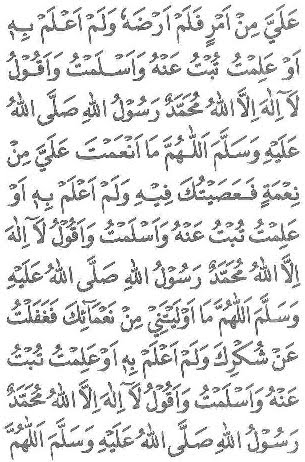 عَلَيَّ مِنْ اَمْرٍ فَلَمْ اَرْضَهُ وَلَمْ اَعْلَمْ بِهٖ
اَوْ عَلِمْتُ تُبْتُ عَنْهُ وَاَسْلَمْتُ وَاَقُوْلُ
لَآ اِلٰهَ اِلَّا اللهُ مُحَمَّدٌ رَسُوْلُ اللهِ صَلَّى اللهُ
عَلَيْهِ وَسَلَّمَ اَللّٰهُمَّ مَا اَنْعَمْتَ عَلَيَّ مِنْ
نِعْمَةٍ فَعَصَيْتُكَ فِيْهِ وَلَمْ اَعْلَمْ بِهٖ اَوْ
عَلِمْتُ تُبْتُ عَنْهُ وَاَسْلَمْتُ وَاَقُوْلُ لَآ اِلٰهَ
اِلَّا اللهُ مُحَمَّدٌ رَسُوْلُ اللهِ صَلَّى اللهُ عَلَيْهِ
وَسَلَّمَ اَللّٰهُمَّ مَا اَوْلَيْتَنِيْ مِنْ نَعْمَائِكَ فَغَفَلْتُ
عَنْ شُكْرِكَ وَلَمْ اَعْلَمْ بِهٖ اَوْ عَلِمْتُ تُبْتُ
عَنْهُ وَاَسْلَمْتُ وَاَقُوْلُ لَآ اِلٰهَ اِلَّا اللهُ مُحَمَّدٌ
رَسُوْلُ اللهِ صَلَّى اللهُ عَلَيْهِ وَسَلَّمَ اَللّٰهُمَّ